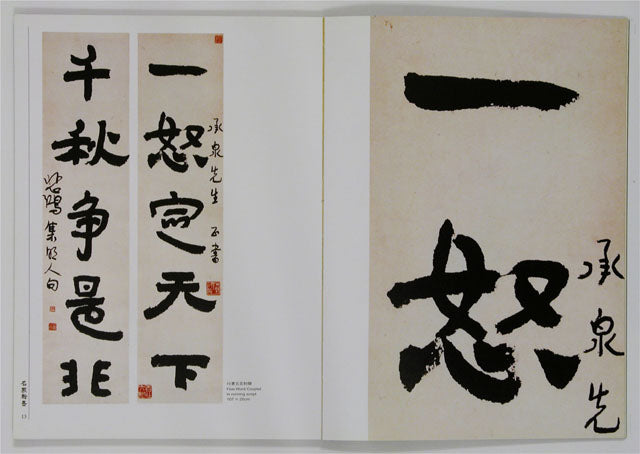 一怒定天下
承泉先生 正書
千秋争是非
悲鴻集人句
行書五言對聯
Five-Word Couplet
in running script
名家翰墨
13
一怒
承泉先